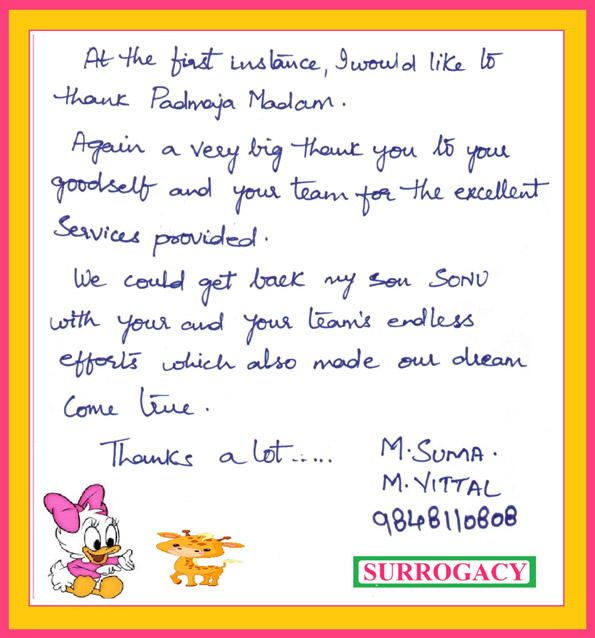 At the first instance, I would like to
thank Padmaja Madam.
Again a very big thank you to your
goodself and your team for the excellent
Services provided.
We could get back my son SONU
with your and your team's endless
efforts which also made our dream
come true.
Thanks a lot.....
M. SUMA.
M. VITTAL
9848110808
SURROGACY